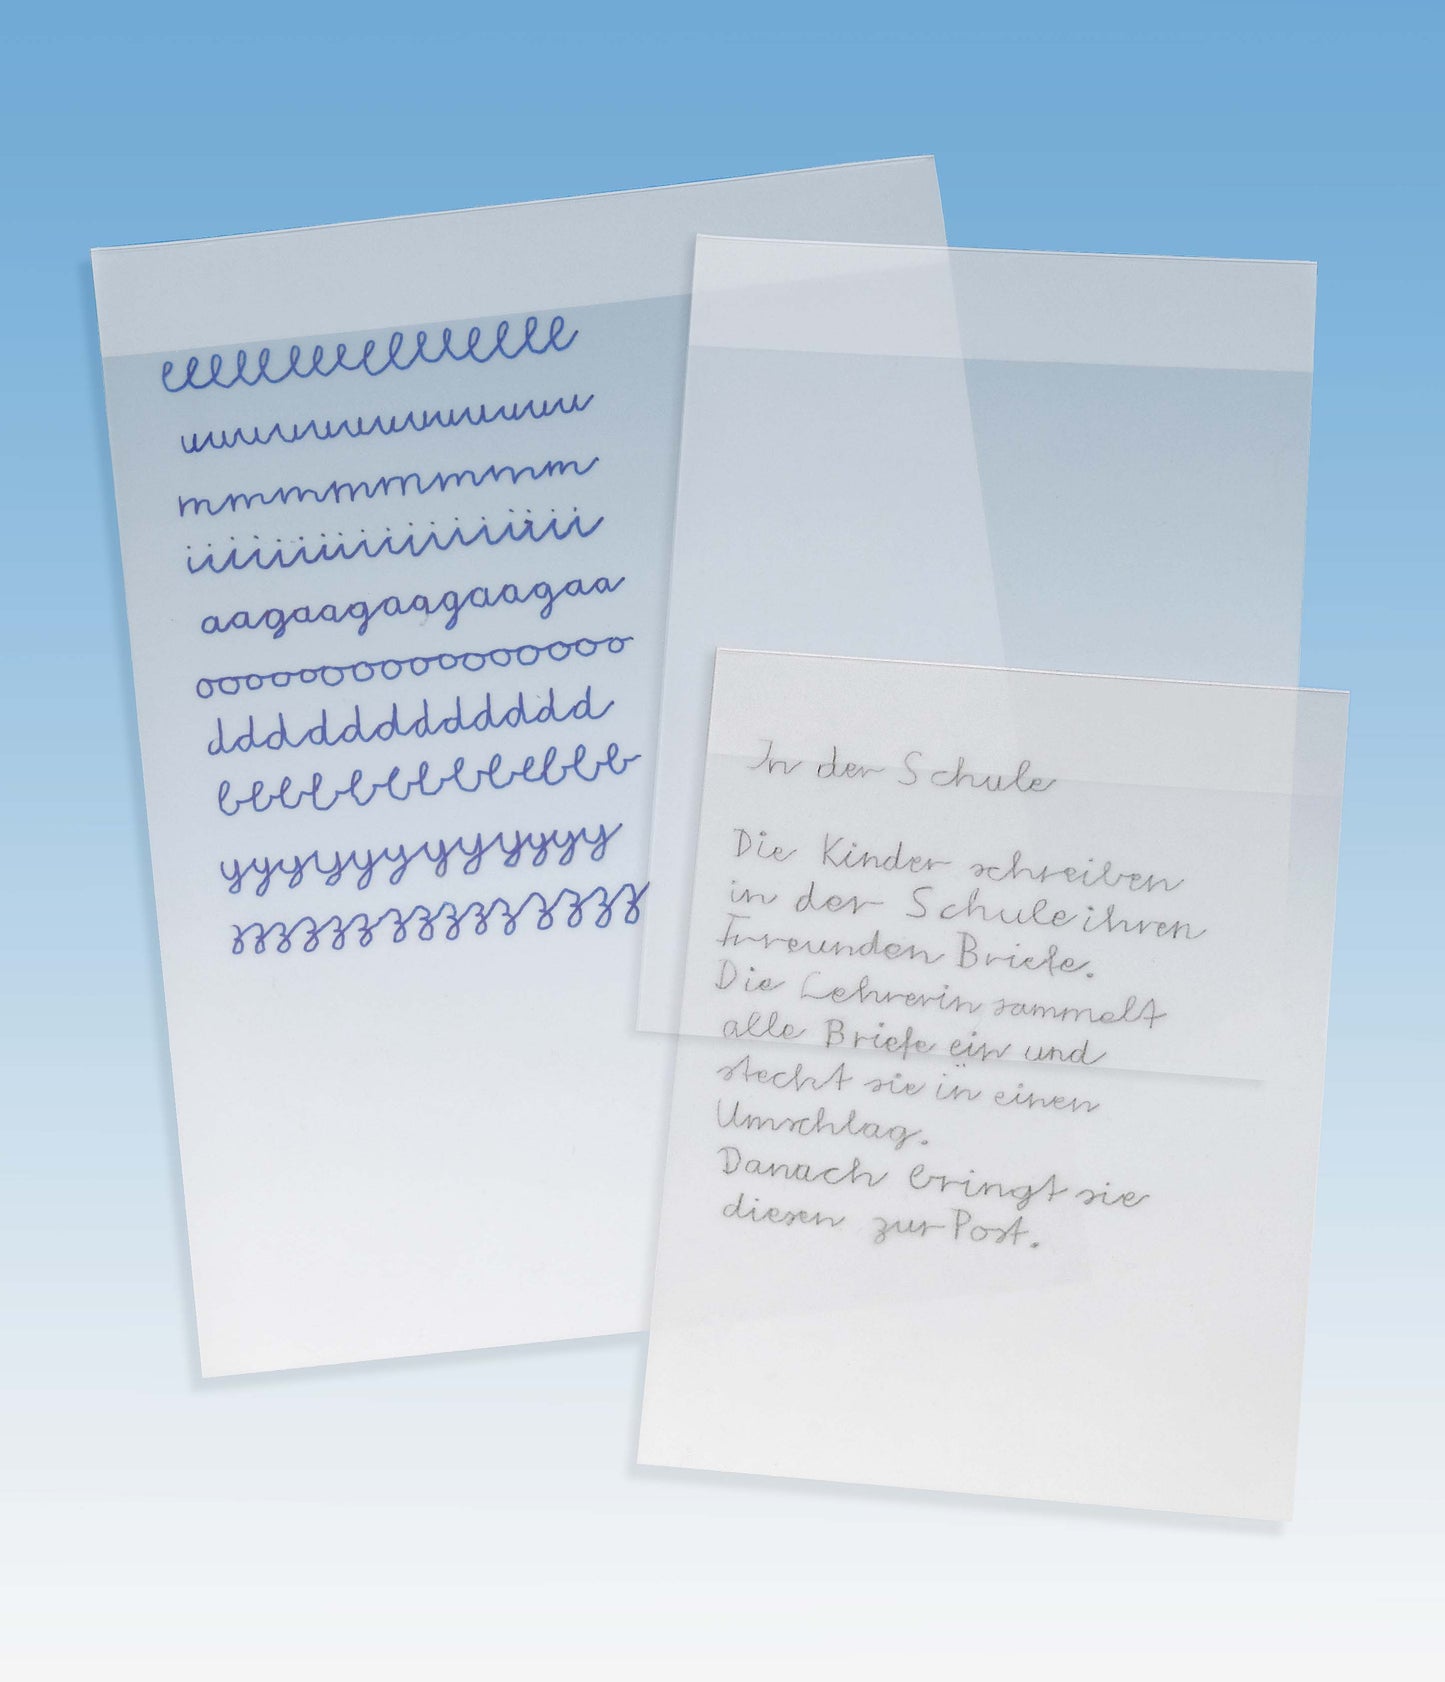 eeeeeeeeeeeeeeee
uuuuuuuuuuuu
mmmmmmmmm
iiiiiiiiiiiiiiiii
aagaagaagaagaa
oooooooooooooooo
dddddddddddd
bbbbbbbbbbbb
yyyyyyyyyyyyy
zzzzzzzzzzzzzz
In der Schule
Die Kinder schreiben
in der Schule ihren
Freunden Briefe.
Die Lehrerin sammelt
alle Briefe ein und
stecht sie in einen
Umschlag.
Danach bringt sie
diesen zur Post.